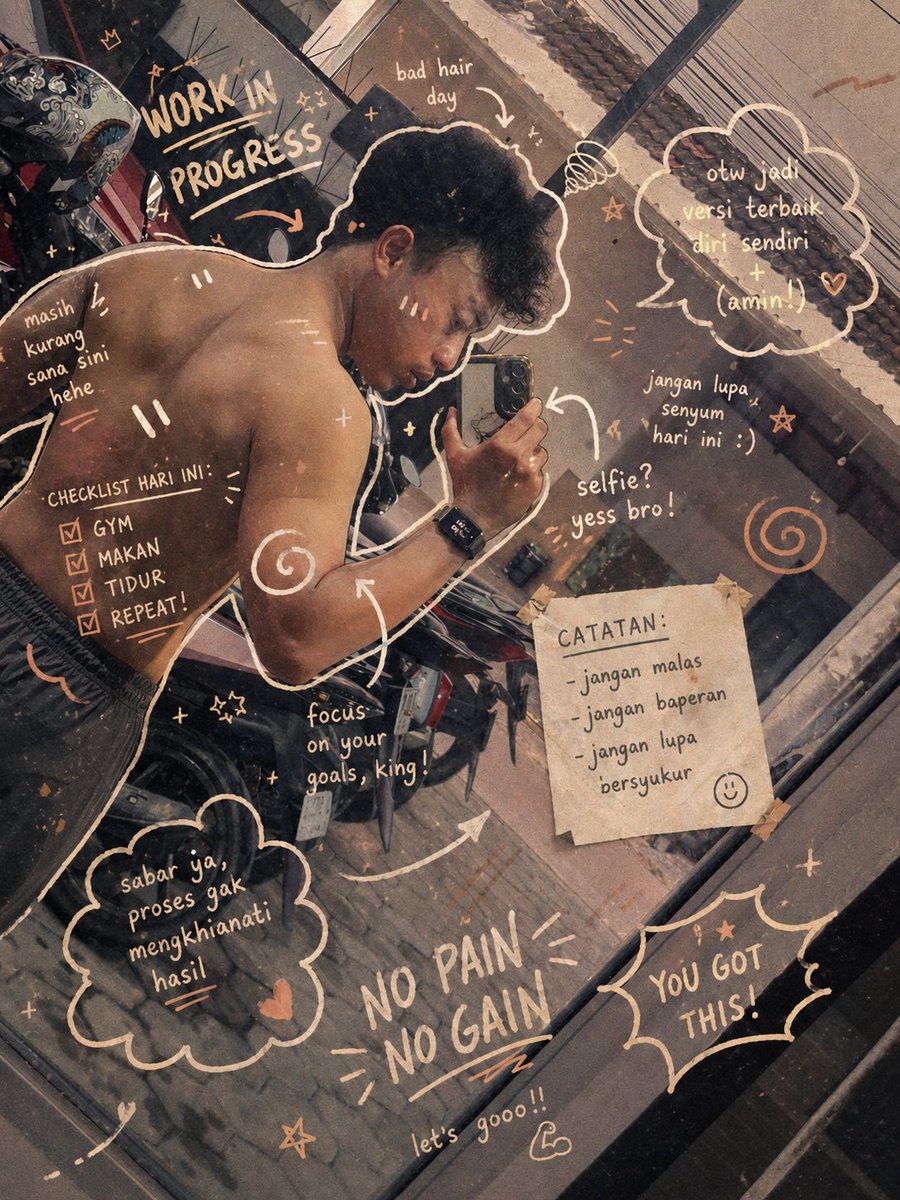 WORK IN
PROGRESS
bad hair
day
otw jadi
versi terbaik
diri sendiri
+
(amin!)
masih
kurang
sana sini
hehe
jangan lupa
senyum
hari ini :)
CHECKLIST HARI INI:
GYM
MAKAN
TIDUR
REPEAT!
selfie?
yess bro!
CATATAN:
- jangan malas
- jangan baperan
- jangan lupa
bersyukur
focus
on your
goals, king!
sabar ya,
proses gak
mengkhianati
hasil
NO PAIN
NO GAIN
YOU GOT
THIS!
let's gooo!!